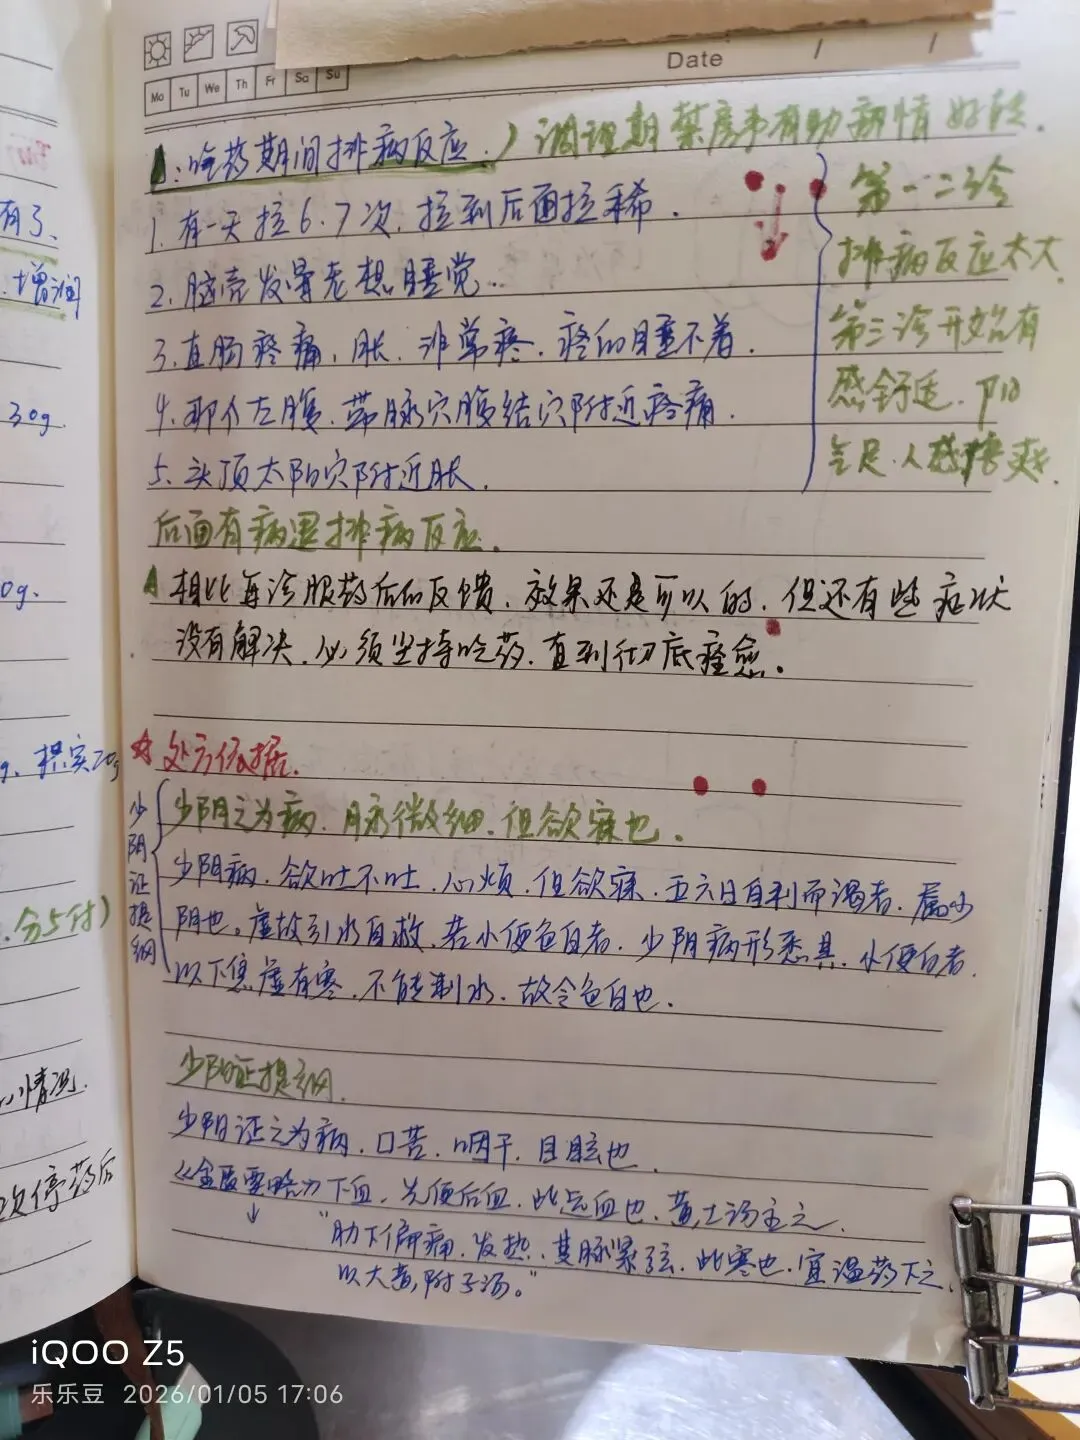 Date / /
Mo Tu We Th Fr Sa Su
：吃药期间排病反应.）调理期禁房事有助病情好转.
1. 有一天拉6.7次. 拉到后面拉稀.
2. 脑壳发晕老想睡觉.
3. 直肠疼痛. 胀. 非常疼. 疼的睡不着.
4. 那个左腹. 带脉穴腹结穴附近疼痛.
5. 头顶太阳穴附近胀.
第一二诊
排病反应太大
第三诊开始有
感舒适.
气足. 人感
后面有病温排病反应.
相比每诊服药后的反馈. 效果还是可以的. 但还有些症状
没有解决. 必须坚持吃药. 直到彻底痊愈.
☆处方依据.
少阴证提纲
少阴之为病. 脉微细. 但欲寐也.
少阴病. 欲吐不吐. 心烦. 但欲寐. 五六日自利而渴者. 属少
阴也。虚故引水自救. 若小便色白者. 少阴病形悉具. 小便白者.
以下焦虚有寒. 不能制水. 故令色白也.
少阳证提纲.
少阳证之为病. 口苦. 咽干. 目眩也.
《金匮要略》下血. 先便后血. 此远血也. 黄土汤主之.
↓ "胁下偏痛. 发热. 其脉紧弦. 此寒也. 宜温药下之.
以大黄附子汤。"
有了.
. 增液
30g.
0g.
g. 枳实20g
. 分5付)
情况.
次停药后
iQOO Z5
乐乐豆 2026/01/05 17:06